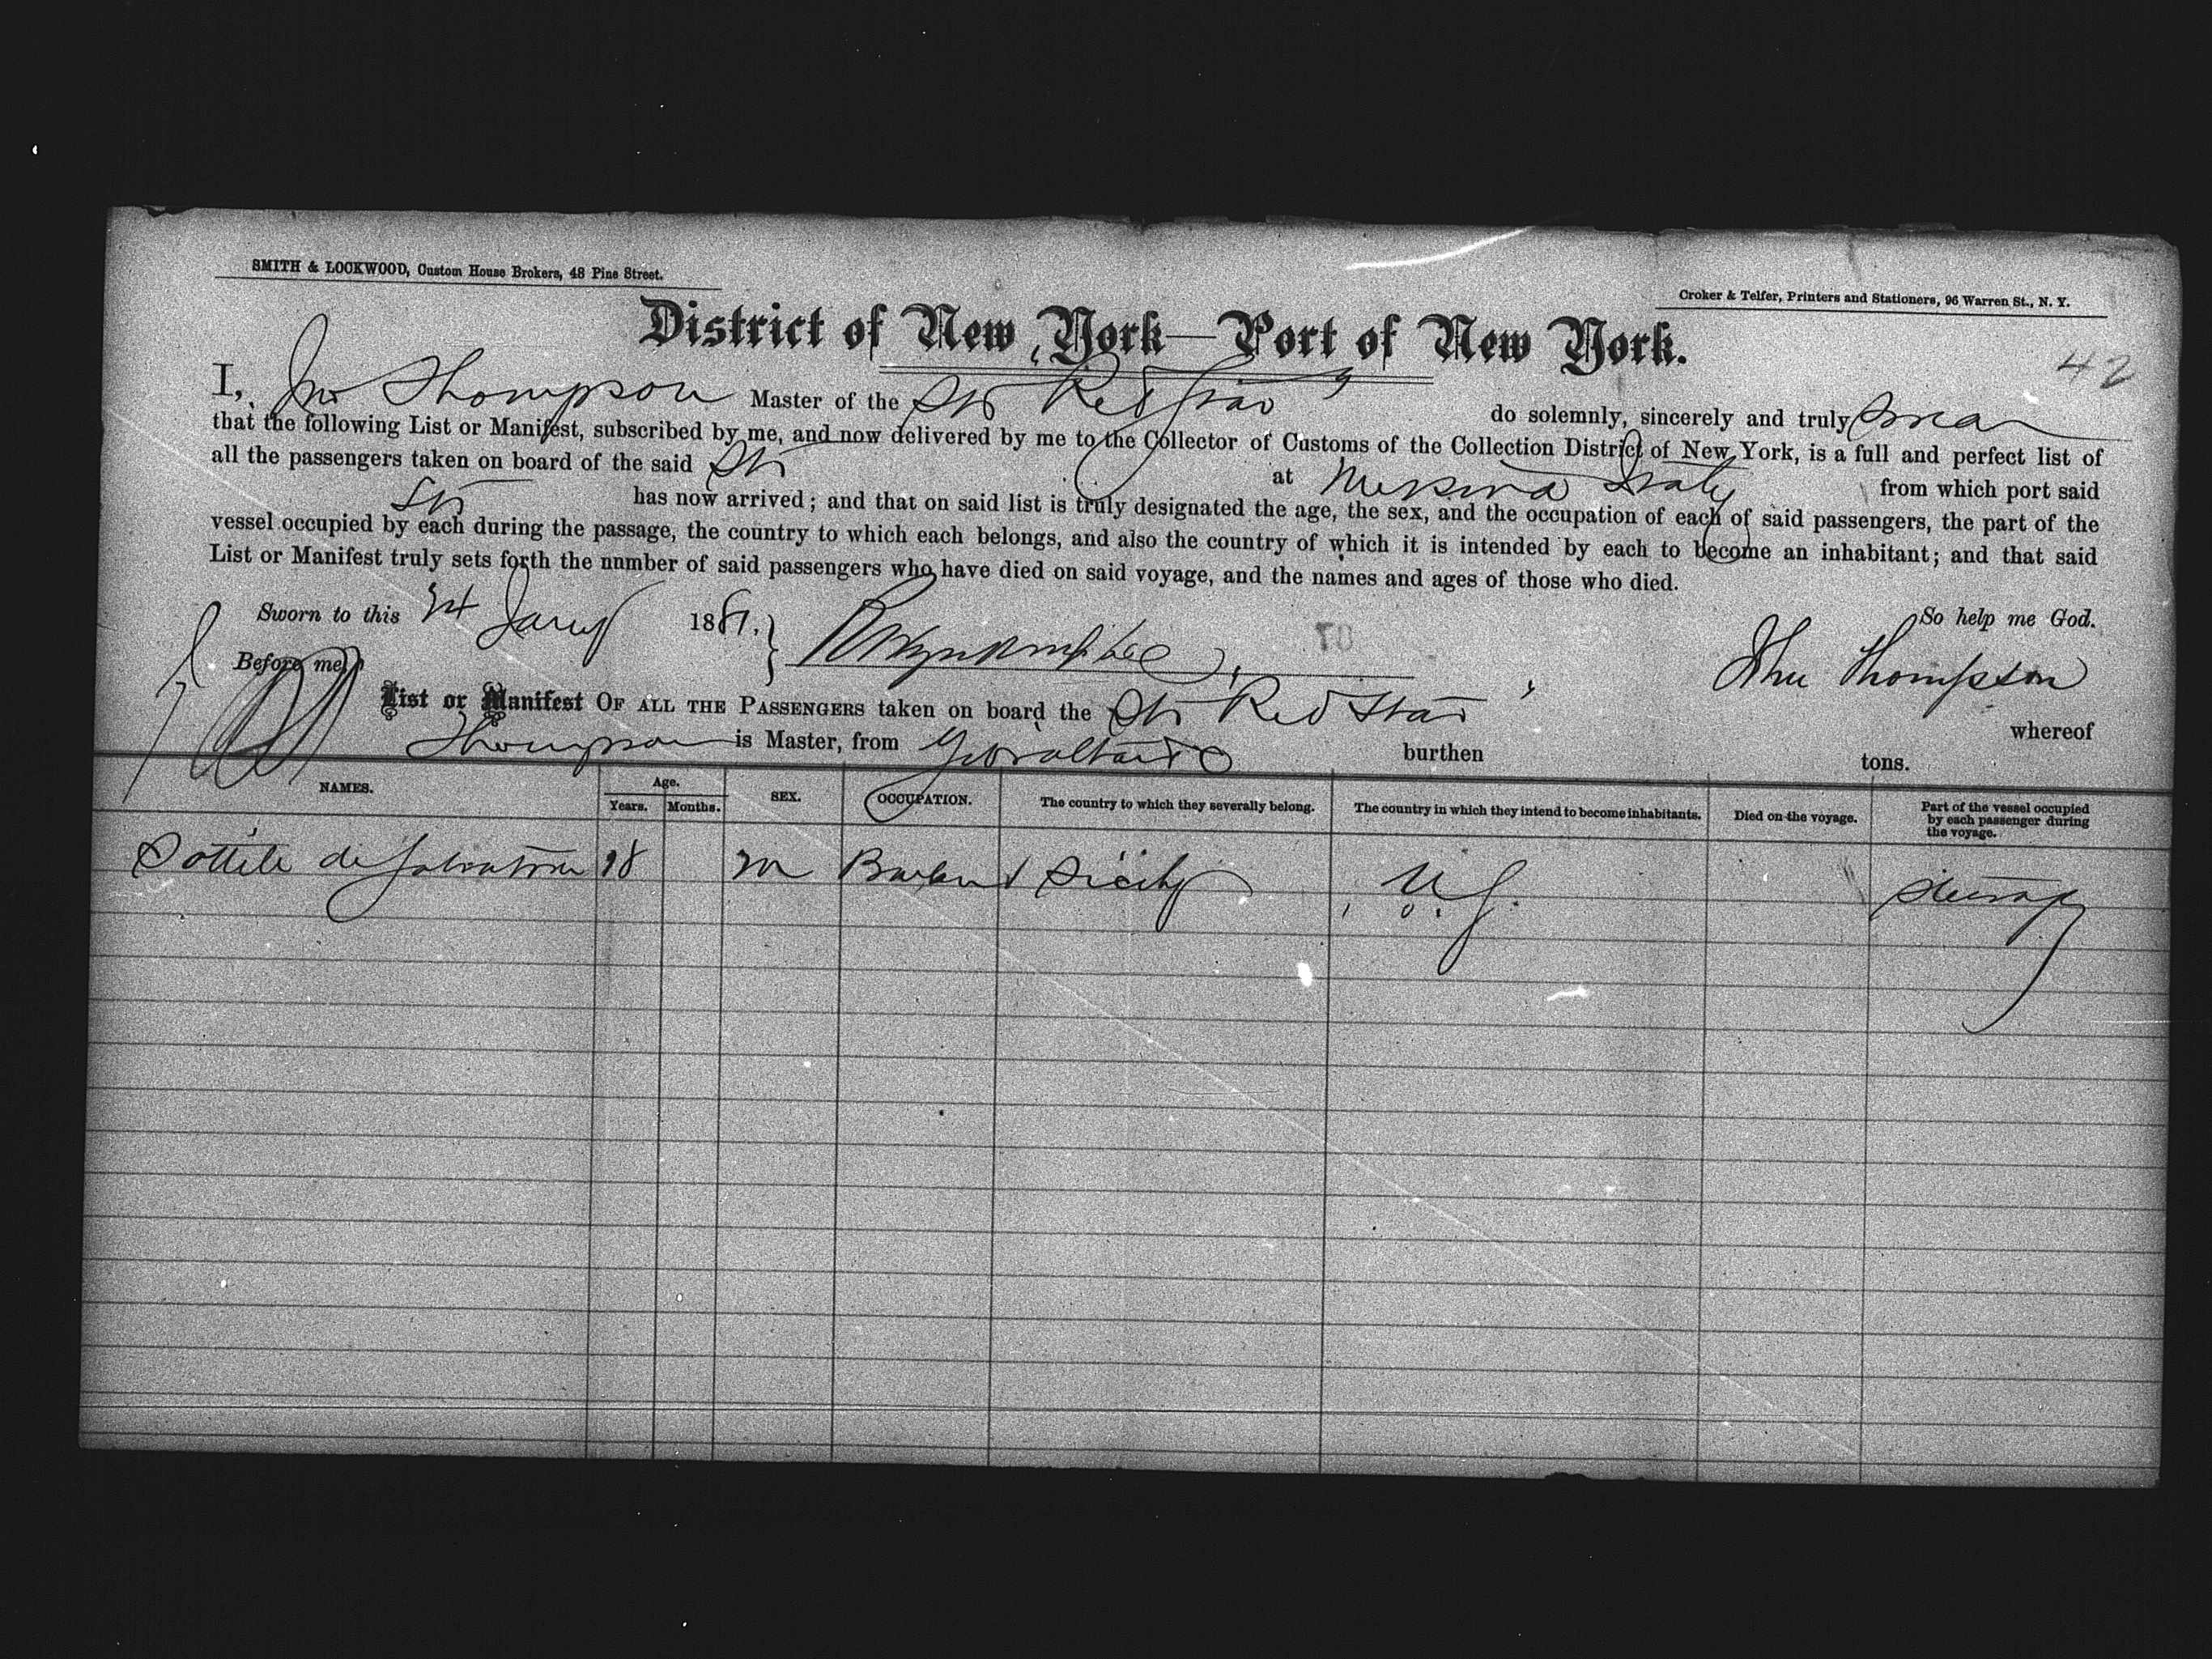 SMITH & LOCKWOOD, Custom House Brokers, 48 Pine Street.
Croker & Telfer, Printers and Stationers, 96 Warren St., N. Y.
District of New York—Port of New York.
42
I, Jno Thompson Master of the Str Red Star do solemnly, sincerely and truly swear
that the following List or Manifest, subscribed by me, and now delivered by me to the Collector of Customs of the Collection District of New York, is a full and perfect list of
all the passengers taken on board of the said Str at Messina Italy from which port said
Str has now arrived; and that on said list is truly designated the age, the sex, and the occupation of each of said passengers, the part of the
vessel occupied by each during the passage, the country to which each belongs, and also the country of which it is intended by each to become an inhabitant; and that said
List or Manifest truly sets forth the nnmber of said passengers who have died on said voyage, and the names and ages of those who died.
Sworn to this 24 Jany 1881. So help me God.
Before me, John Thompson
List or Manifest OF ALL THE PASSENGERS taken on board the Str Red Star whereof
Thompson is Master, from Gibraltar burthen tons.
NAMES. Age. Years. Months. SEX. OCCUPATION. The country to which they severally belong. The country in which they intend to become inhabitants. Died on the voyage. Part of the vessel occupied by each passenger during the voyage.
Sottile de Salvatore 18 m Barber Sicily U.S. Steerage